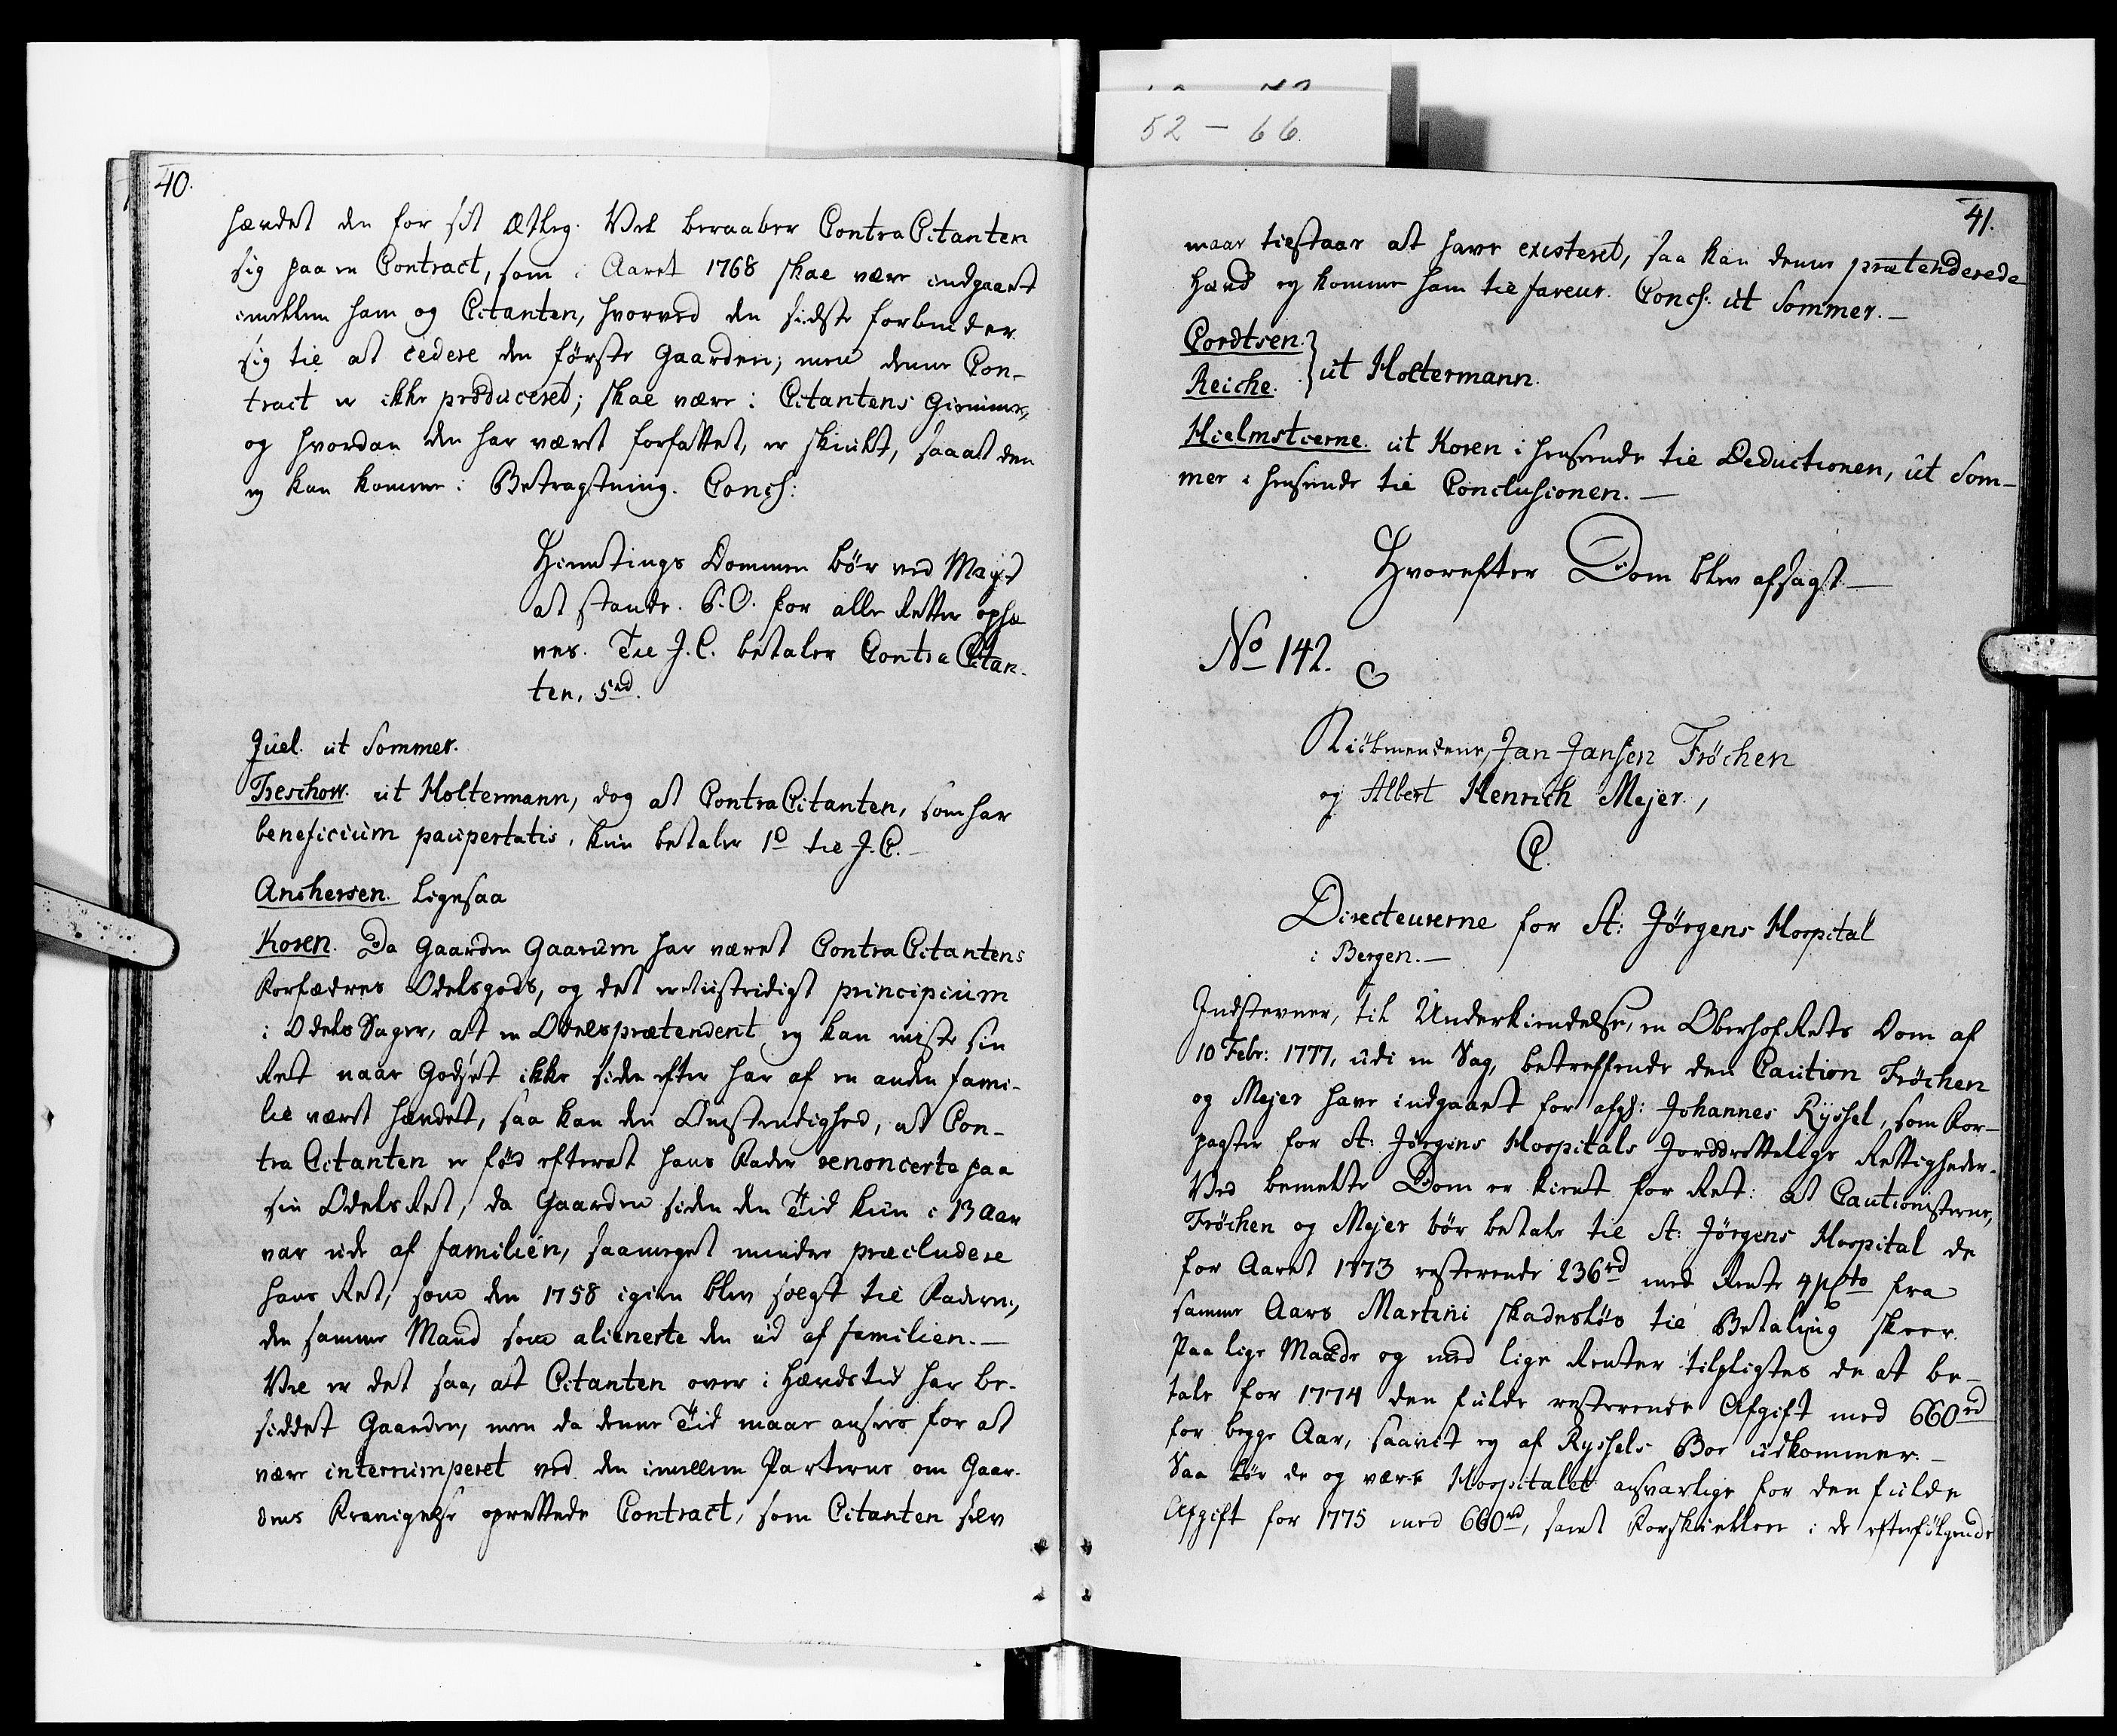 52 – 66.
40.
hævdet den for sit Ætleg. Vel beraaber ContraCitanten
sig paa en Contract, som i Aaret 1768 skal være indgaaet
imellem ham og Citanten, hvorved den sidste forbinder
sig til at cedere den første Gaarden; men denne Con-
tract er ikke produceret; skal være i Citantens Giemme,
og hvordan den har været forfattet, er skiult, saa at den
ej kan komme i Betragtning. Concl:
Hiemtings Dommen bør ved Magt
at stande. P. O. for alle Retter ophæ
ves. Til J. C. betaler Contra Citan-
ten, 5 rd.
Juel. ut Sommer.
Treschow. ut Holtermann, dog at ContraCitanten, som har
beneficium paupertatis, kun betaler 1 d til J. C. –
Anchersen. Ligesaa
Kosen. Da Gaarden Gaarum har været ContraCitantens
Forfædres Odelsgods, og det er et ustridigt principium
i Odels Sager, at en Odelsprætendent ej kan miste sin
Ret naar Godset ikke siden efter har af en anden fami-
lie været hævdet, saa kan den Omstændighed, at Con-
tra Citanten er fød efterat hans Fader renoncerte paa
sin OdelsRet, da Gaarden siden den Tid kun i 13 Aar
var ude af familien, saameget mindre præcludere
hans Ret, som den 1758 igien blev solgt til Faderen,
den samme Mand som alienerte den ud af familien. –
Vel er det saa, at Citanten over i Hævds tid har be-
siddet Gaarden, men da denne Tid maae ansees for at
være interrumperet ved den imellem Parterne om Gaar-
dens Fravigelse oprettede Contract, som Citanten selv
41.
maae tilstaae at have existeret, saa kan denne prætenderede
Hævd ej komme ham til faveur. Concl: ut Sommer. –
Cordtsen.
Reiche. } ut Holtermann.
Hielmstierne. ut Kosen i henseende til Deductionen, ut Som-
mer i henseende til Conclusionen. –
Hvorefter Dom blev afsagt –
No 142.
Kiøbmændene, Jan Jansen Frøchen
og Albert Henrich Mejer,
C.
Directeurerne for St: Jørgens Hospital
i Bergen. –
Indstevner, til Underkiendelse, en OberhofRets Dom af
10 Febr: 1777, udi en Sag, betreffende den Caution Frøchen
og Mejer have indgaaet for afgl: Johannes Ryssel, som For-
pagter for St: Jørgens Hospitals Jorddrottelige Rettigheder.
Ved bemelte Dom er kient for Ret: at Cautionisterne,
Frøchen og Mejer bør betale til St: Jørgens Hospital de
for Aaret 1773 resterende 236 rd med Rente 4 pCto fra
samme Aars Martini skadesløs til Betaling skeer.
Paa lige Maade og med lige Renter tilpligtes de at be-
tale for 1774 den fulde resterende Afgift med 660 rd
for begge Aar, saavit ej af Ryssels Boe udkommer. –
Saa bør de og være Hospitalet ansvarlige for den fulde
Afgift for 1775 med 660 rd, samt Forskiellen i de efterfølgende